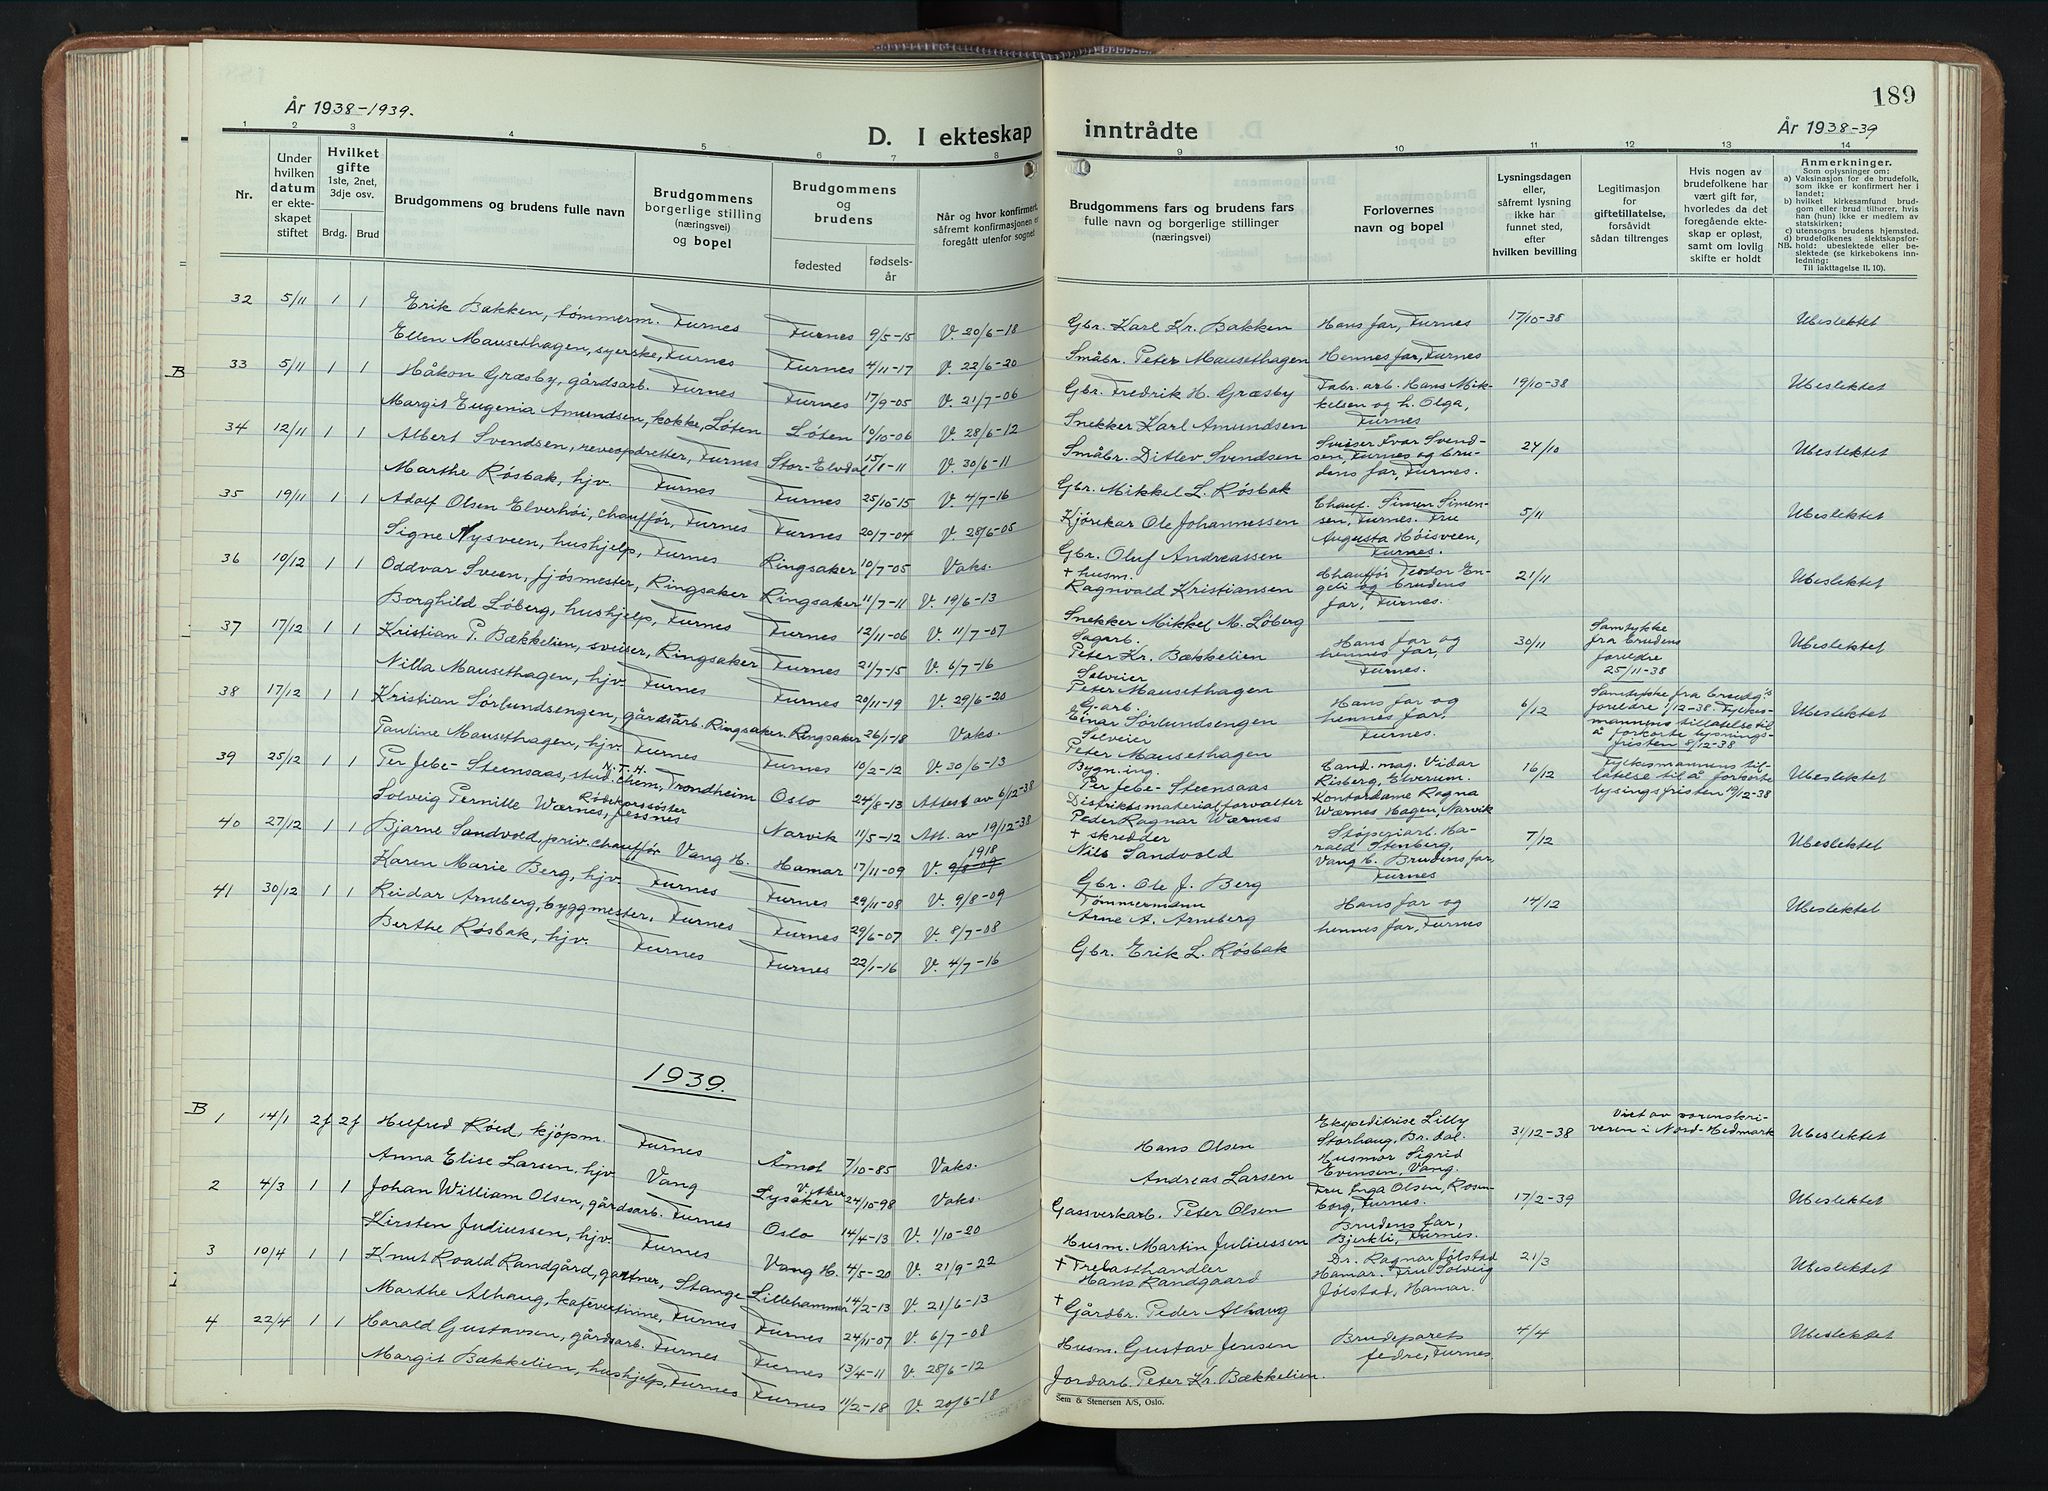 189
År 1938-1939.
År 1938-39
D. I ekteskap inntrådte
1 2 3 4 5 6 7 8 9 10 11 12 13 14
Nr.
Under hvilken datum er ekteskapet stiftet
Hvilket gifte 1ste, 2net, 3dje osv.
Brdg. Brud
Brudgommens og brudens fulle navn
Brudgommens borgerlige stilling (næringsvei) og bopel
Brudgommens og brudens
fødested fødselsår
Når og hvor konfirmert, såfremt konfirmasjonen er foregått utenfor sognet
Brudgommens fars og brudens fars fulle navn og borgerlige stillinger (næringsvei)
Forlovernes navn og bopel
Lysningsdagen eller, såfremt lysning ikke har funnet sted, efter hvilken bevilling
Legitimasjon for giftetillatelse, forsåvidt sådan tiltrenges
Hvis nogen av brudefolkene har vært gift før, hvorledes da det foregående ekteskap er opløst, samt om lovlig skifte er holdt
Anmerkninger.
Som oplysning om:
a) Vaksinasjon for de brudefolk, som ikke er konfirmert her i landet;
b) hvilket kirkesamfund brudgom eller brud tilhører, hvis han (hun) ikke er medlem av statskirken;
c) utensogns brudens hjemsted.
d) brudefolkenes slektskapsforhold: ubeslektede eller beslektede (se kirkebokens innledning:
NB.
Til iakttagelse II. 10).
32 5/11 1 1 Erik Bakken, tømmerm. Furnes Furnes 9/5-15 V. 20/6-18 Gbr. Karl Kr. Bakken Hans far, Furnes 17/10-38 Ubeslektet
Ellen Mausethagen, syerske, Furnes Furnes 4/11-17 V. 22/6-20 Småbr. Peter Mausethagen Hennes far, Furnes
B 33 5/11 1 1 Håkon Græsby, gårdsarb. Furnes Furnes 17/9-05 V. 21/7-06 Gbr. Fredrik H. Græsby Fabr. arb. Hans Mikkelsen og h. Olga, Furnes 19/10-38 Ubeslektet
Margit Eugenia Amundsen, kokke, Løten Løten 10/10-06 V. 28/6-12 Snekker Karl Amundsen
34 12/11 1 1 Albert Svendsen, reveopdretter, Furnes Stor-Elvdal 15/8-11 V. 30/6-11 Småbr. Ditlev Svendsen Sveiser Ivar Svendsen, Furnes og brudens far, Furnes. 24/10 Ubeslektet
Marthe Røsbak, hjv. Furnes Furnes 25/10-15 V. 4/7-16 Gbr. Mikkel L. Røsbak
35 19/11 1 1 Adolf Olsen Elverhøi, chauffør, Furnes Furnes 20/7-04 V. 28/6-05 Kjørekar Ole Johannessen Chauf. Simen Simensen, Furnes. Fru Augusta Høisveen, Furnes. 5/11 Ubeslektet
Signe Nysveen, hushjelp, Furnes Ringsaker 10/7-05 Vaks. Gbr. Oluf Andreassen
36 10/12 1 1 Oddvar Sveen, fjøsmester, Ringsaker Ringsaker 11/7-11 V. 19/6-13 + husm. Ragnvald Kristiansen Chauffør Teodor Engeli og brudens far, Furnes. 21/11 Ubeslektet
Borghild Løberg, hushjelp, Furnes Furnes 12/11-06 V. 11/7-07 Snekker Mikkel M. Løberg
37 17/12 1 1 Kristian P. Bækkelien, sveiser, Ringsaker Furnes 21/7-15 V. 6/7-16 Sagarb. Peter Kr. Bækkelien Hans far og hennes far, Furnes. 30/11 Samtykke fra brudens foreldre 25/11-38 Ubeslektet
Nilla Mausethagen, hjv. Furnes Furnes 20/11-19 V. 29/6-20 Selveier Peter Mausethagen
38 17/12 1 1 Kristian Sørlundsengen, gårdsarb. Ringsaker. Ringsaker 26/1-18 Vaks. G.arb. Einar Sørlundsengen Hans far og hennes far, Furnes. 6/12 Samtykke fra brudg.s foreldre 1/12-38 Fylkesmannens tillatelse til å forkorte lysningsfristen 8/12-38 Ubeslektet
Pauline Mausethagen, hjv. Furnes Furnes 10/2-12 V. 30/6-13 Selveier Peter Mausethagen
39 25/12 1 1 Per Jebe-Steensaas, stud. N.T.H. chem, Trondheim Oslo 24/8-13 Attest av 6/12-38 Bygn.ing. Per Jebe-Steensaas Cand. mag. Vidar Risberg, Elverum. Kontordame Ragna Wærnes Hagen, Narvik 16/12 Fylksmannens tillatelse til å forkorte lysingsfristen 19/12-38 Ubeslektet
Solveig Pernille Wærnes, Rødekorssøster, Jessnes Narvik 11/5-12 Att. av 19/12-38 Distriktsmaterialforvalter Peder Ragnar Wærnes
40 27/12 1 1 Bjarne Sandvold, priv. chauffør Vang H. Hamar 17/11-09 V. 1918 + skredder Nils Sandvold Støperiarb. Harald Stenberg, Vang H. Brudens far, Furnes 7/12 Ubeslektet
Karen Marie Berg, hjv. Furnes Furnes 29/11-08 V. 9/8-09 Gbr. Ole J. Berg
41 30/12 1 1 Reidar Arneberg, byggmester, Furnes Furnes 29/6-07 V. 8/7-08 Tømmermann Arne A. Arneberg Hans far og hennes far, Furnes 14/12 Ubeslektet
Berthe Røsbak, hjv. Furnes Furnes 22/1-16 V. 4/7-16 Gbr. Erik L. Røsbak
1939.
B 1 14/1 2f 2f Helfred Røed, kjøpm. Furnes Åmot 7/10-85 Vaks. Hans Olsen Ekspeditrise Lilly Storhaug, Br.dal. Husmor Sigrid Evensen, Vang. 31/12-38 Viet av sorenskriveren i Nord-Hedmark Ubeslektet
Anna Elise Larsen, hjv. Vang Lysaker V. Aker 24/10-98 Vaks. Andreas Larsen
2 4/3 1 1 Johan William Olsen, gårdsarb. Furnes Oslo 14/4-13 V. 1/10-20 Gassverkarb. Peter Olsen Fru Inga Olsen, Rosenborg, Furnes. Brudens far, Bjerkli, Furnes. 17/2-39 Ubeslektet
Kirsten Juliussen, hjv. Furnes Vang H. 4/5-20 V. 21/9-22 Husm. Martin Juliussen
3 10/4 1 1 Knut Roald Randgård, gartner, Stange Lillehammer 14/2-13 V. 21/6-13 + Trelasthandler Hans Randgaard Dr. Ragnar Jølstad Hamar. Fru Solveig Jølstad, Hamar. 21/3 Ubeslektet
Marthe Alhaug, kafevertinne, Furnes Furnes 24/11-07 V. 6/7-08 + Gårdbr. Peder Alhaug
4 22/4 1 1 Harald Gustavsen, gårdsarb. Furnes Furnes 13/4-11 V. 28/6-12 Husm. Gustav Jensen Brudeparets fedre, Furnes. 4/4 Ubeslektet
Margit Bækkelien, hushjelp, Furnes Furnes 11/2-18 V. 20/6-18 Jordarb. Peter Kr. Bækkelien.
Sem & Stenersen A/S, Oslo.